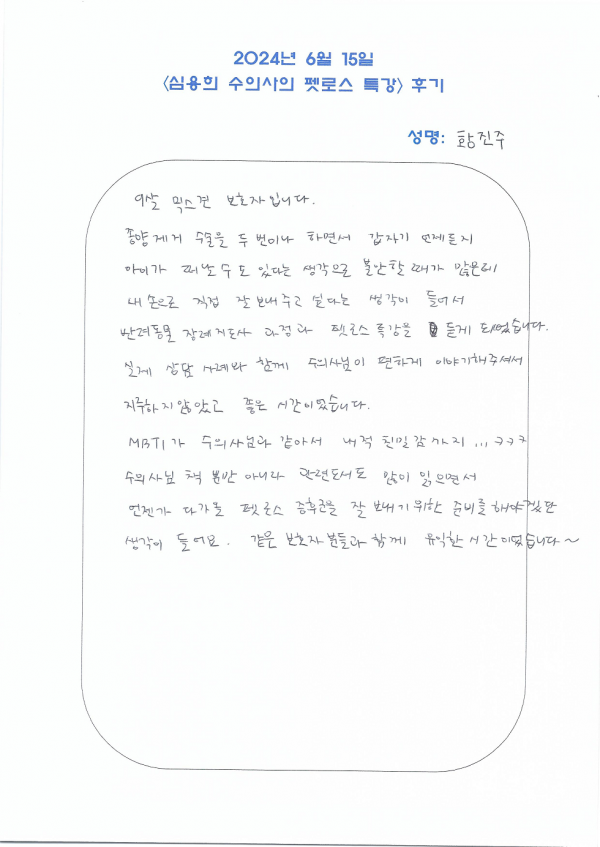 2024년 6월 15일
<심용희 수의사의 펫로스 특강> 후기
성명: 황진주
9살 믹스견 보호자입니다.
종양제거 수술을 두번이나 하면서 갑자기 언제든지
아이가 떠날수도 있다는 생각으로 불안할때가 많은데
내 손으로 직접 잘 보내주고 싶다는 생각이 들어서
반려동물 장례지도사 과정과 펫로스 특강을 듣게 되었습니다.
실제 상담 사례와 함께 수의사님이 편하게 이야기해주셔서
지루하지않았고 좋은 시간이었습니다.
MBTI가 수의사님과 같아서 내적 친밀감까지 ... ㅋㅋㅋ
수의사님 책 뿐만 아니라 관련도서도 많이 읽으면서
언젠가 다가올 펫로스 증후군을 잘 보내기위한 준비를해야겠단
생각이 들어요. 같은 보호자분들과 함께 유익한 시간이었습니다~